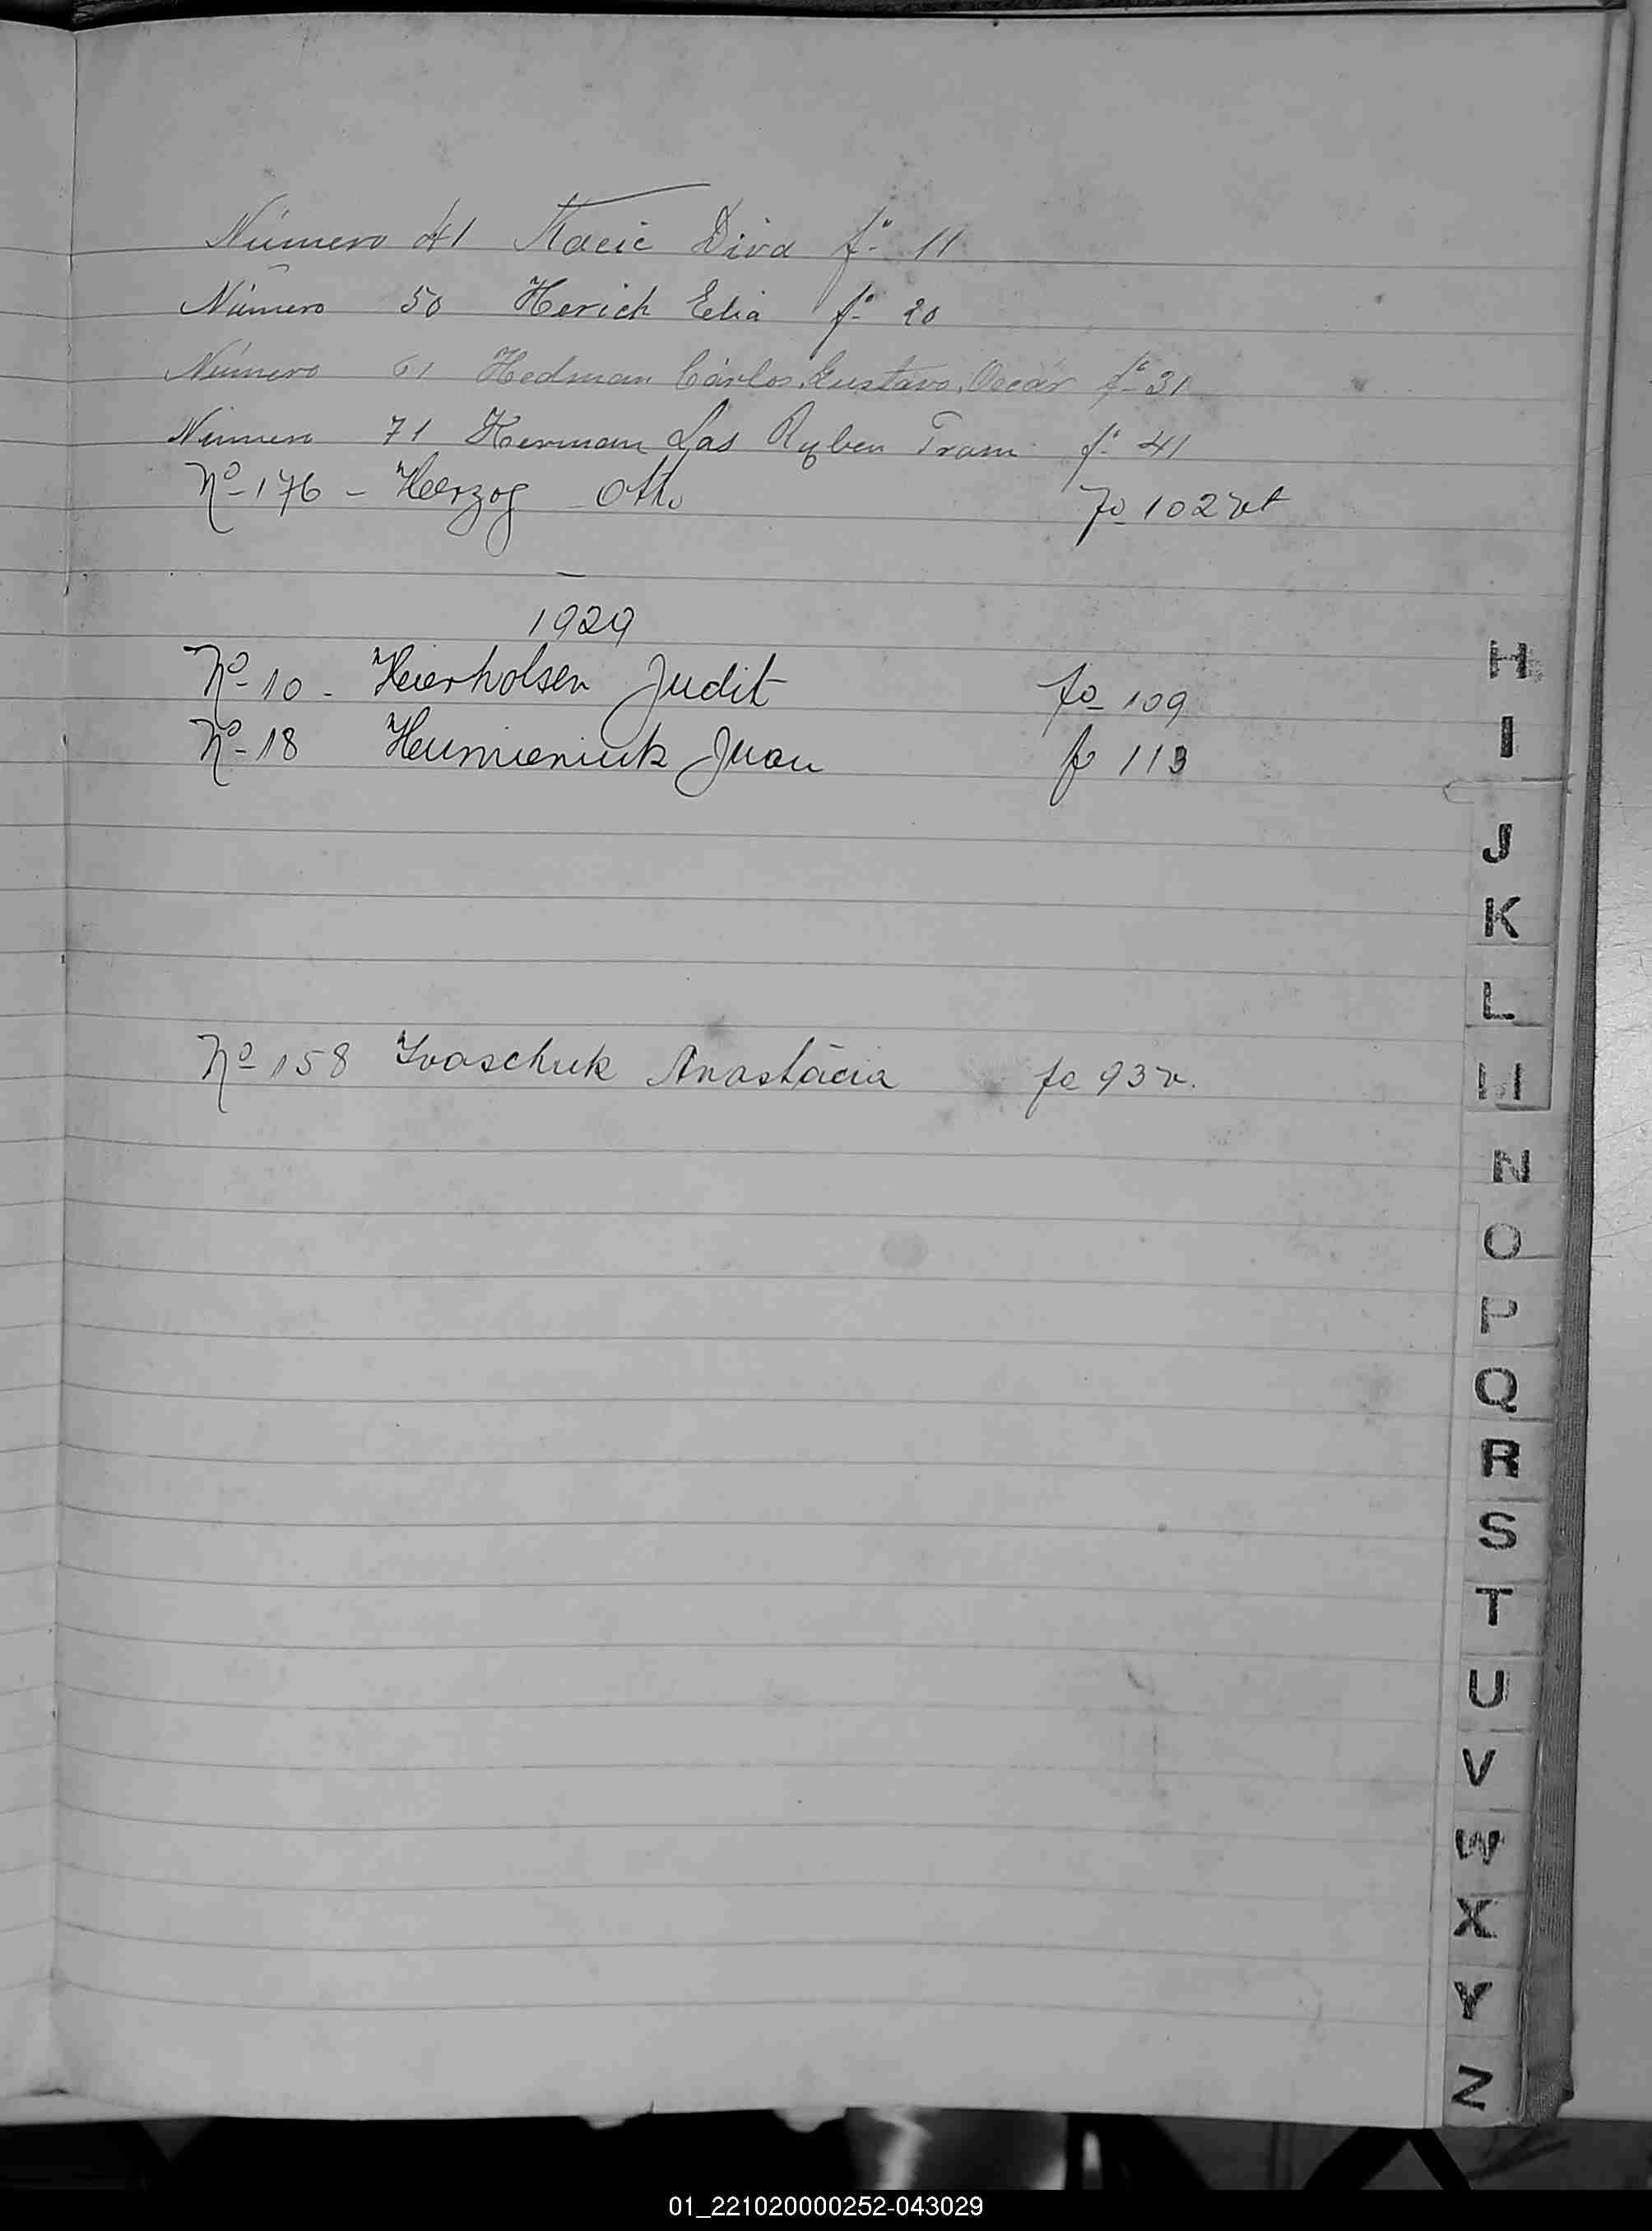 Número 41 Hacic Diva fº 11
Número 50 Herich Elia fº 20
Número 61 Hedman Cárlos Gustavo Oscár fº 31
Número 71 Herman Las Ryben Tram fº 41
Nº 176 - Herzog Otto fo 102 vt
1929
Nº 10 - Heierholsen Judit fo 109
Nº 18 Humieniuk Juan fo 113
Nº 158 Ivaschuk Anastácia fo 93 v.
H
I
J
K
L
M
N
O
P
Q
R
S
T
U
V
W
X
Y
Z
01_221020000252-043029